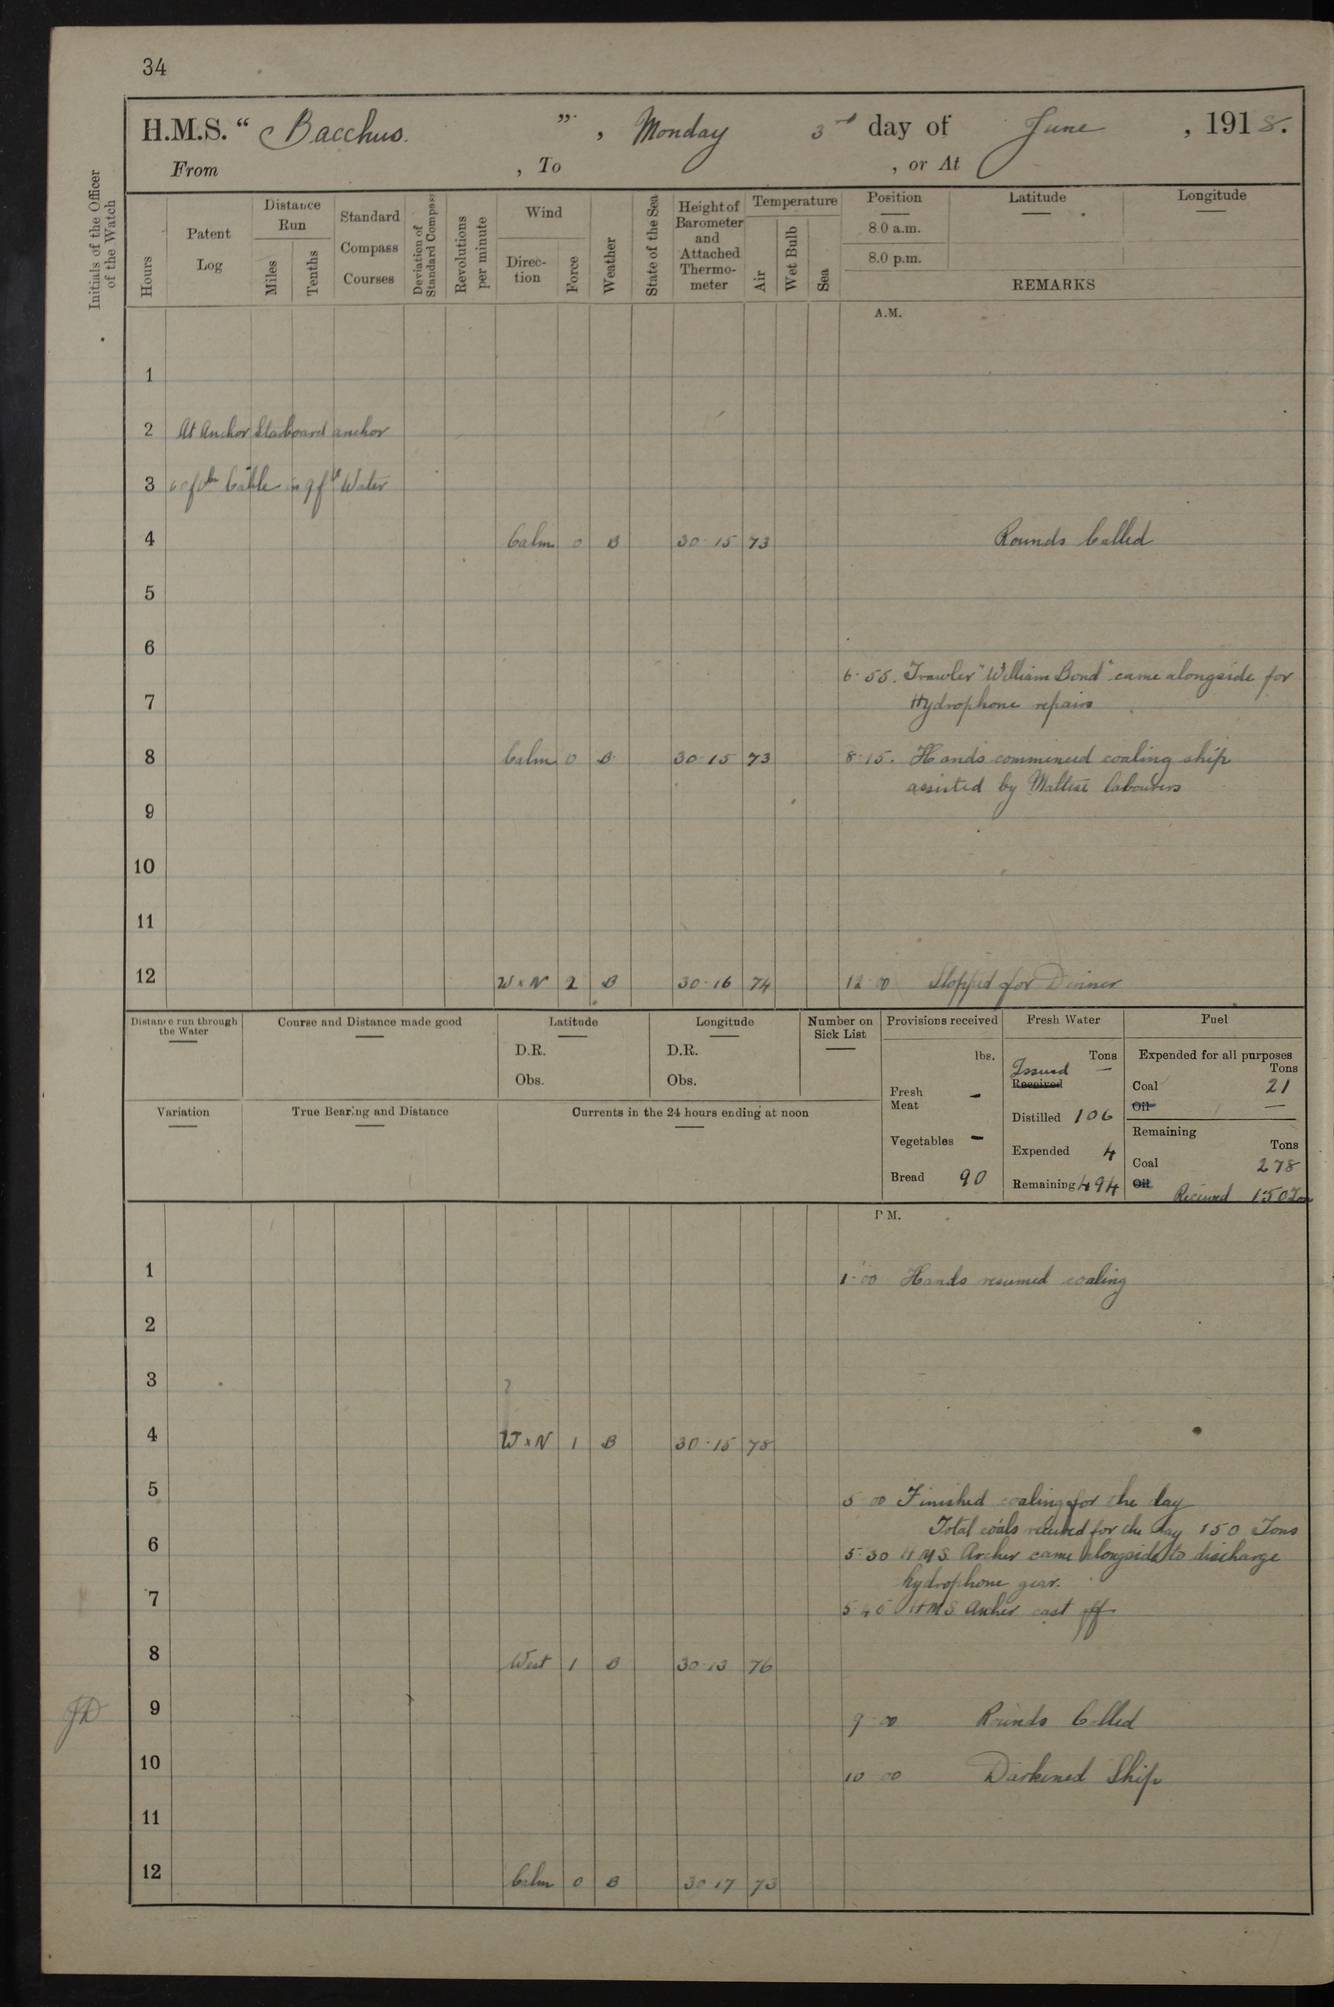 34
H.M.S. “ Bacchus. ”, Monday 3rd day of June, 1918.
From , To , or At
Initials of the Officer of the Watch
Hours
Patent Log
Distance Run
Miles
Tenths
Standard Compass Courses
Deviation of Standard Compass
Revolutions per minute
Wind
Direction
Force
Weather
State of the Sea
Height of Barometer and Attached Thermometer
Temperature
Air
Wet Bulb
Sea
Position Latitude Longitude
8.0 a.m.
8.0 p.m.
REMARKS
A.M.
1
2 At Anchor Starboard anchor
3 60 fthm Cable in 9 fth Water
4 Calm 0 B 30·15 73 Rounds Called
5
6
6·55. Trawler "William Bond" came alongside for
7 Hydrophone repairs
8 Calm 0 B 30·15 73 8·15. Hands commenced coaling ship
assisted by Maltese labourers
9
10
11
12 W x N 2 B 30·16 74 12·00 Stopped for Dinner
Distance run through the Water
Course and Distance made good
Latitude
D.R.
Obs.
Longitude
D.R.
Obs.
Number on Sick List
Provisions received
lbs.
Fresh Meat -
Vegetables -
Bread 90
Fresh Water
Tons
Issued —
Received
Distilled 106
Expended 4
Remaining 494
Fuel
Expended for all purposes
Tons
Coal 21
Oil —
Remaining
Tons
Coal 278
Oil
Received 150 Tons
Variation
True Bearing and Distance
Currents in the 24 hours ending at noon
P M.
1 1·00 Hands resumed coaling
2
3
4 W x N 1 B 30·15 78
5 5 00 Finished coaling for the day
Total coals received for the day 150 Tons
6 5·30 HMS. Archer came alongside to discharge
hydrophone gear.
7 5 45 HMS Archer cast off
8 West 1 B 30·13 76
JD 9 9 00 Rounds Called
10 10 00 Darkened Ship
11
12 Calm 0 B 30 17 73